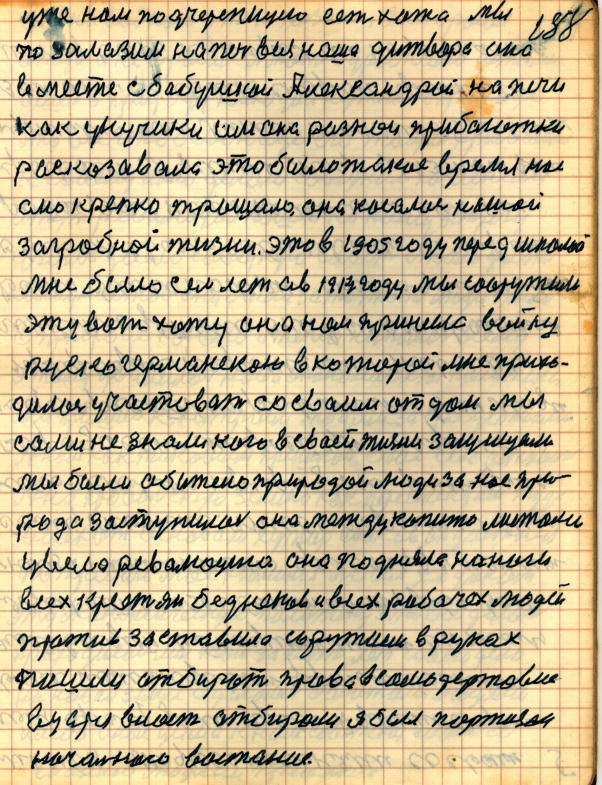 уже нам подчерепицею сет хата мы
188
по залазим на пот вия наша дитвора она
вместе сбабушкой Александрой на печи
как унучики им она разной прибаютки
расказавала это било такое время нас
смо крепко трощало, она касалас нашой
загробной жизни. это в 1905 году перед школой
мне било сем лет а в 1913 году мы сооружили
эту вот хату она нам принесла войну
руско германскою в которой мне прихо-
дилос участвоват со сваим отдом мы
сами не знали кого в своей жизни защищали
мы били абижено природой люди за нас при-
рода заступилас она между капито листами
увела революция она подняла на ноги
всех крестян бедняков и всех рабачех людей
против заставила соружием в руках
пошли отбират права всамодержавие
вцаря власт отбирали я был партизан
началного востание.